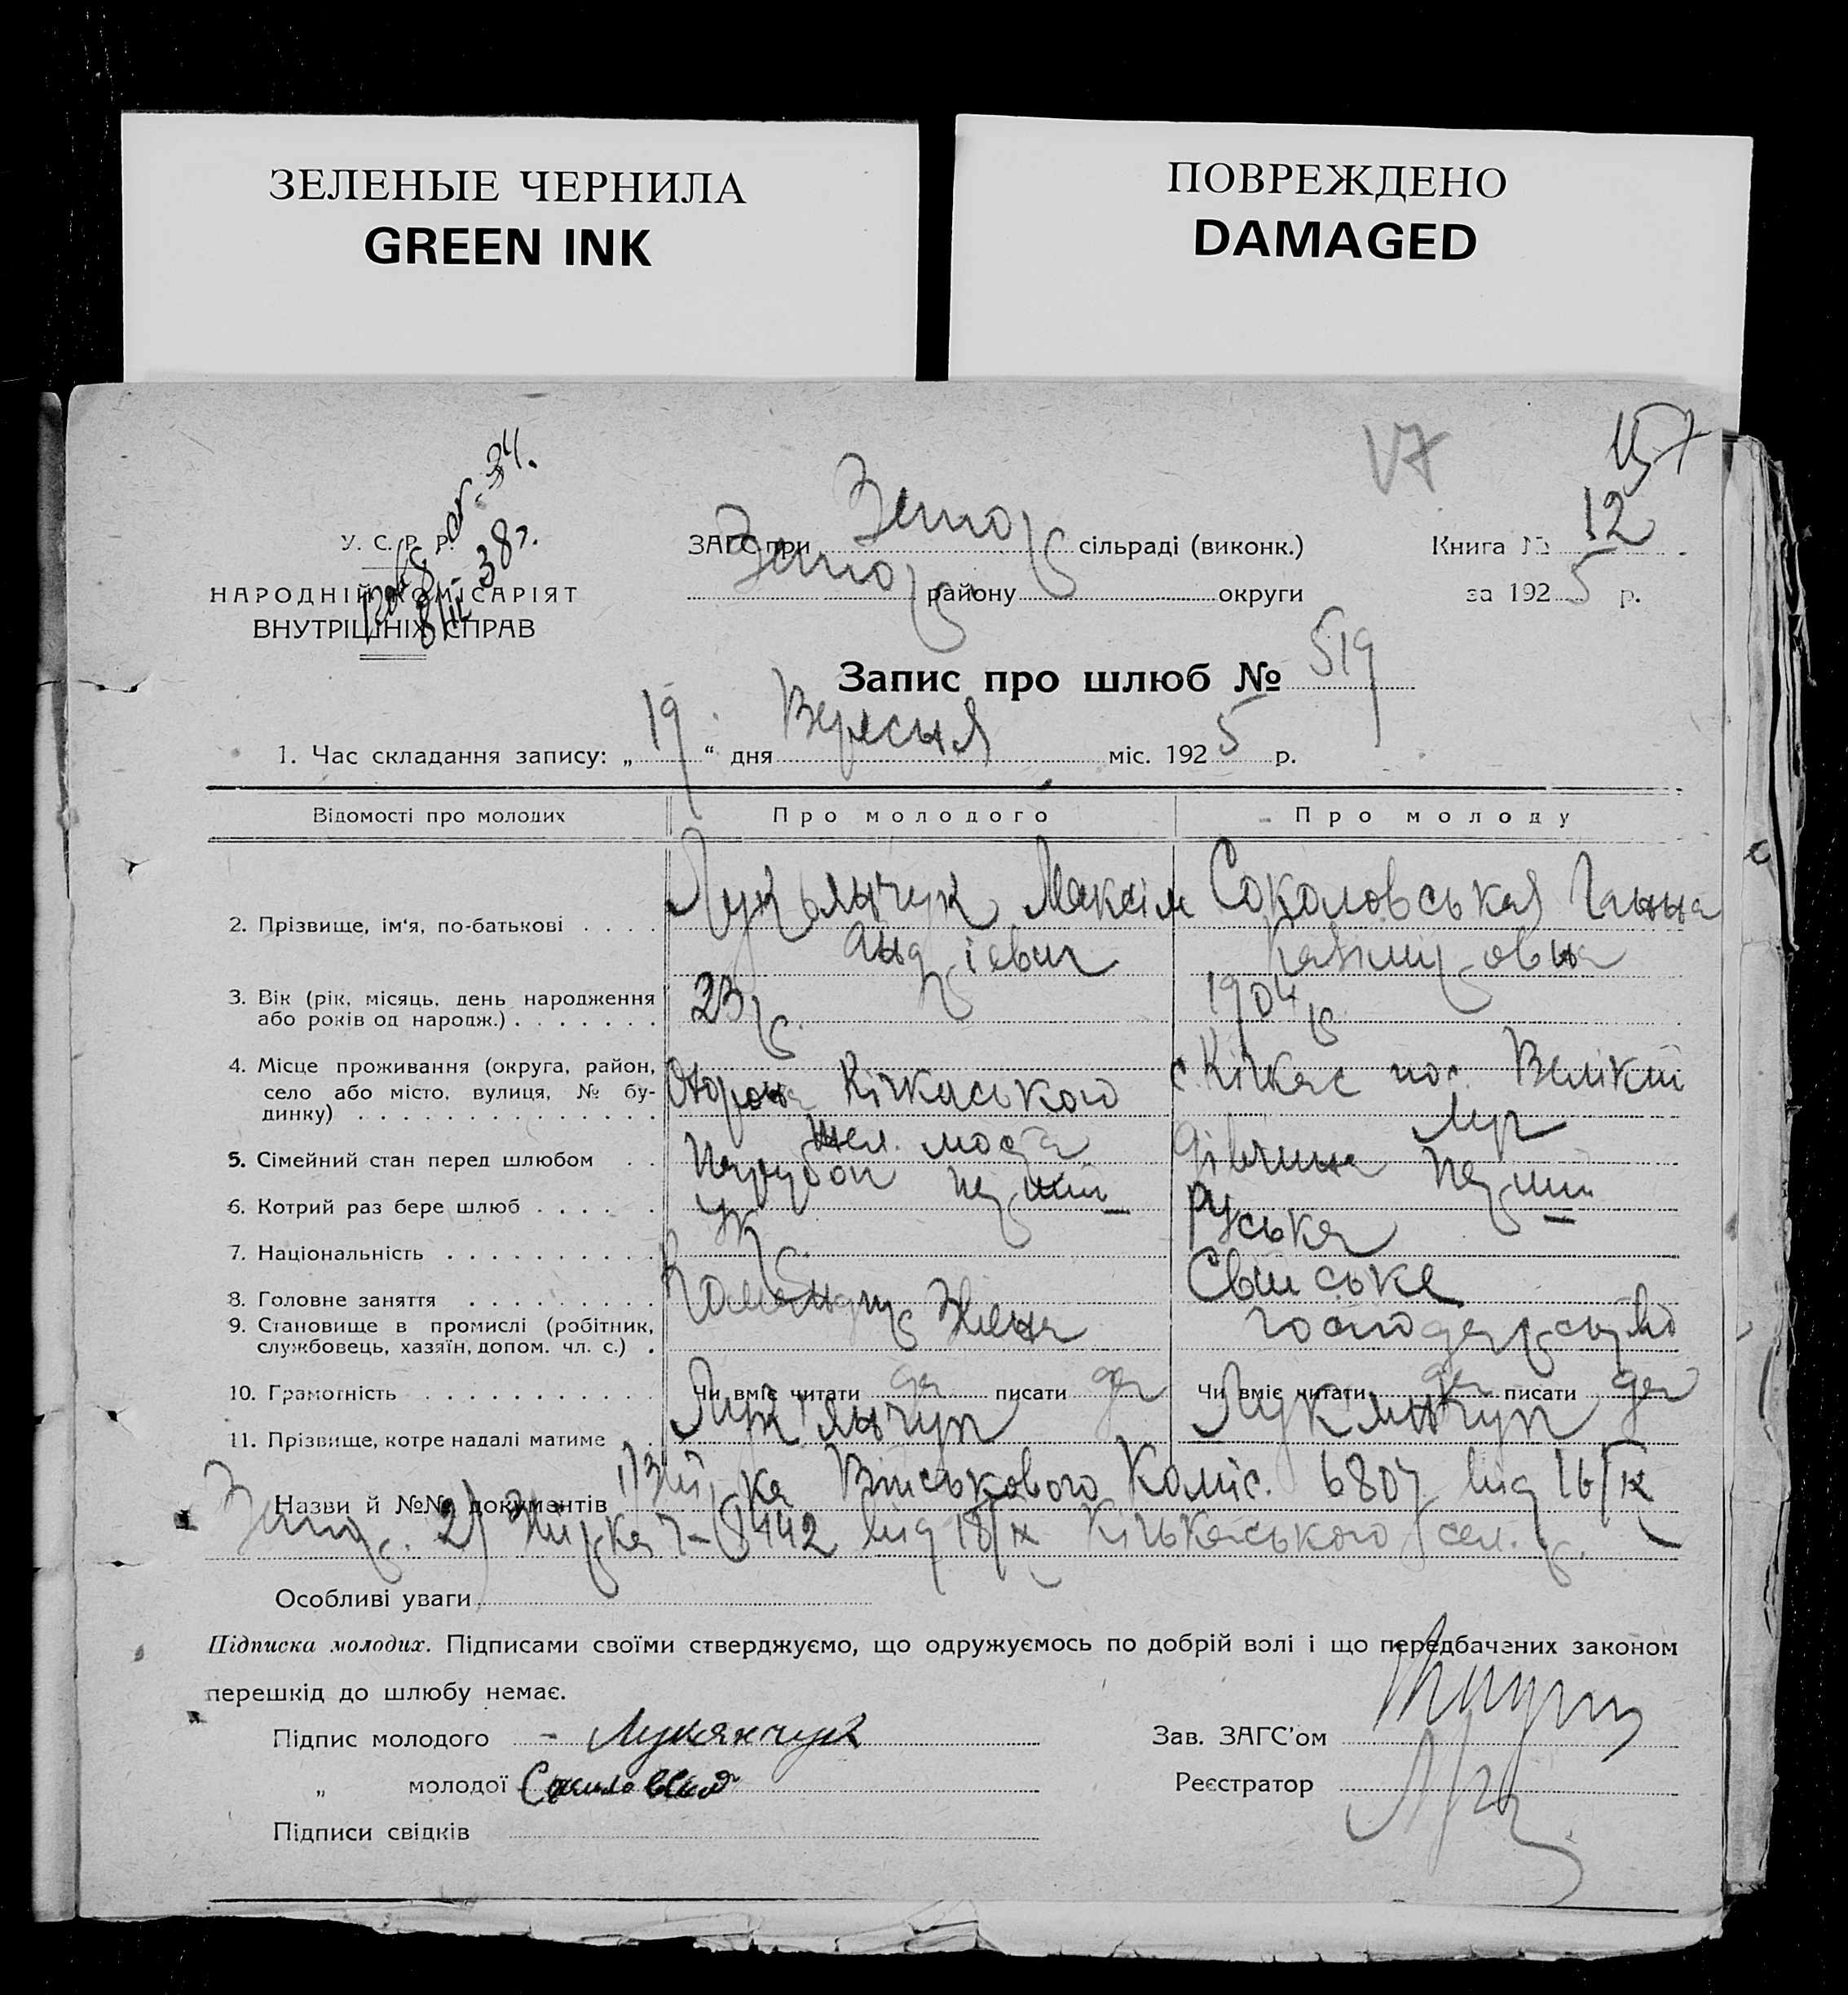 ЗЕЛЕНЫЕ ЧЕРНИЛА
GREEN INK
ПОВРЕЖДЕНО
DAMAGED
17
157
У. С. Р. Р.
НАРОДНІЙ КОМІСАРІЯТ
ВНУТРІШНІХ СПРАВ
ЗАГС при Запор сільраді (виконк.)
Запор району округи
Книга № 12
за 1925 р.
Запис про шлюб № 519
1. Час складання запису: „19“ дня Вересня міс. 1925 р.
Відомості про молодих Про молодого Про молоду
2. Прізвище, ім'я, по-батькові Лук'янчук Максім Соколовськая Ганна
Андрієвич Казимировна
3. Вік (рік, місяць, день народження або років од народж.) 23 р. 1904 р.
4. Місце проживання (округа, район, село або місто, вулиця, № будинку) Охорона Кічкаського с. Кічкас пос. Велікий
жел. моста Луг
5. Сімейний стан перед шлюбом Парубок Дівчина
6. Котрий раз бере шлюб перший перший
7. Національність Укр. Руська
8. Головне заняття Командир Сільське
9. Становище в промислі (робітник, службовець, хазяїн, допом. чл. с.) господарство
10. Грамотність Чи вміє читати да писати да Чи вміє читати да писати да
11. Прізвище, котре надалі матиме Лук'янчук Лукянчук
Назви й №№ документів 1) Військового Коміс. 6807 від 16/IX
Запор. 2) 442 від 18/IX Кічькаського сел. р.
Особливі уваги
Підписка молодих. Підписами своїми стверджуємо, що одружуємось по добрій волі і що передбачених законом
перешкід до шлюбу немає.
Підпис молодого - Лукянчук
Зав. ЗАГС'ом
„ молодої
Реєстратор
Підписи свідків